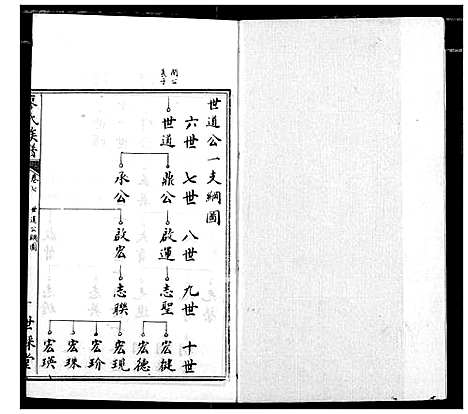 世道公一支綱圖
六世 七世 八世 九世 十世
閏公
長子
世道
鼎公 啟運 志聖 宏健
宏德
承公 啟宏 志聯 宏現
宏玠
宏珠
宏瑛
氏族譜
卷七 世道公綱圖
世采堂